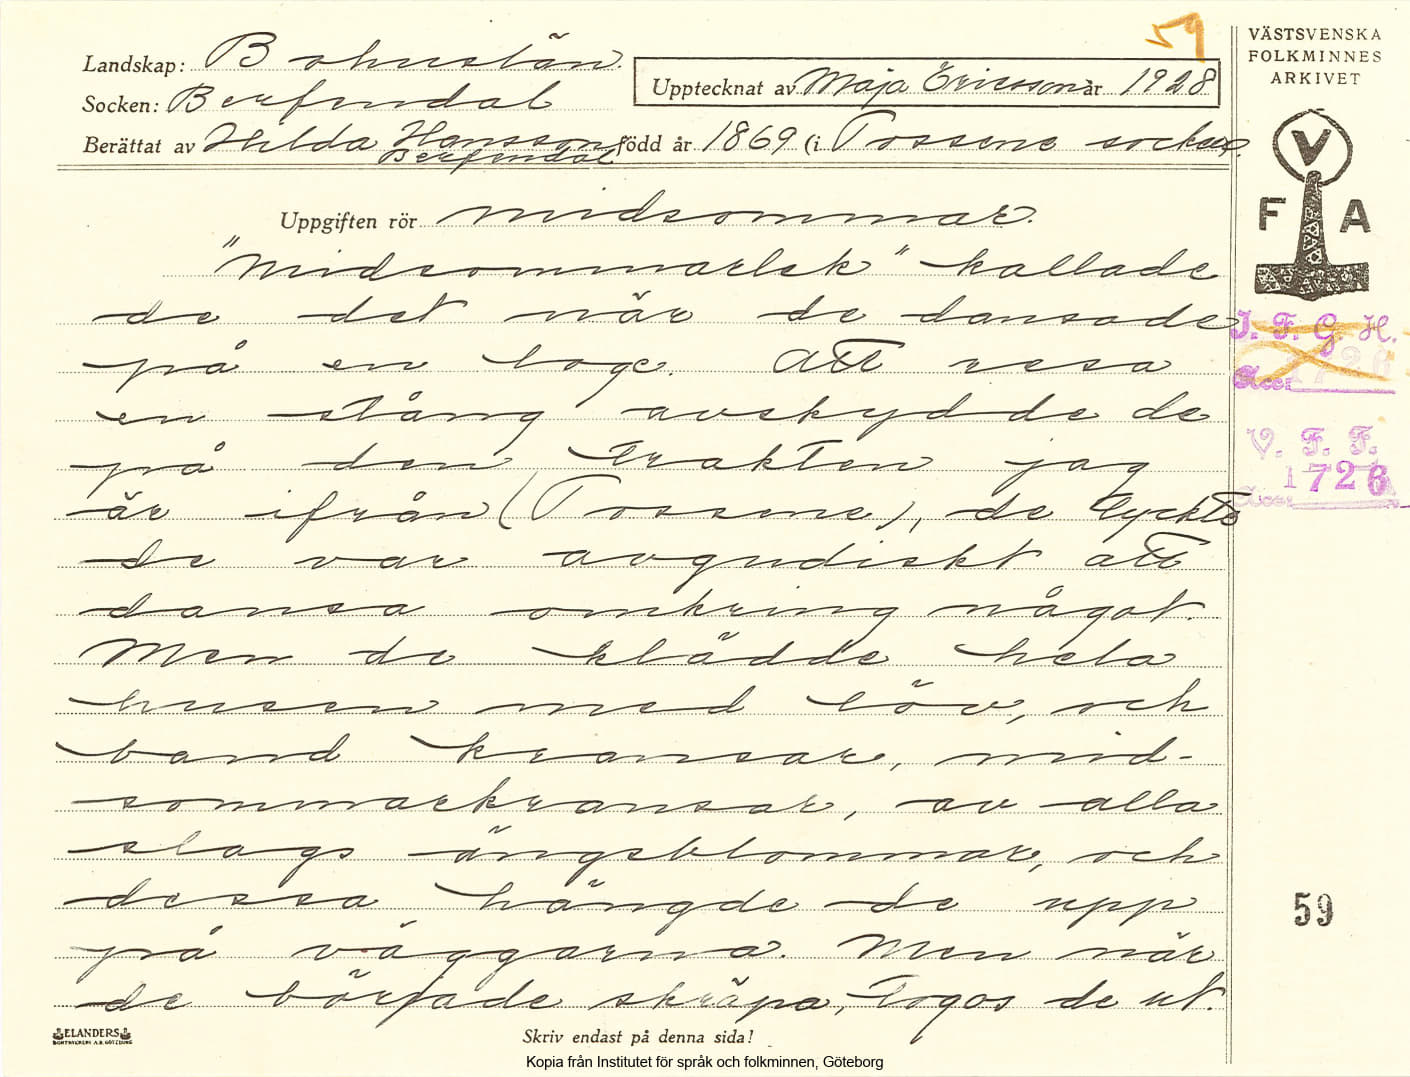 59
Landskap: Bohuslän.
Socken: Berfendal
Upptecknat av Maja Ericsson år 1928
Berättat av Hilda Hansson född år 1869 (i Tossene socken.
Berfendal
Uppgiften rör midsommar.
"Midsommarlek" kallade
de det när de dansade
på en loge. Att resa
en stång avskydde de
på den trakten jag
är ifrån (Tossene), de tyckte
de var avgudiskt att
dansa omkring något.
Men de klädde hela
husen med löv, och
band kransar, mid-
sommarkransar, av alla
slags ängsblommor, och
dessa hängde de upp
på väggarna. Men när
de började skräpa, togos de ut.
ELANDERS
BOKTRYCKERI A.B. GÖTEBORG
Skriv endast på denna sida!
Kopia från Institutet för språk och folkminnen, Göteborg
VÄSTSVENSKA
FOLKMINNES
ARKIVET
V
F A
I. F. G. H.
Acc:
V. F. F.
1726
Acc:
59